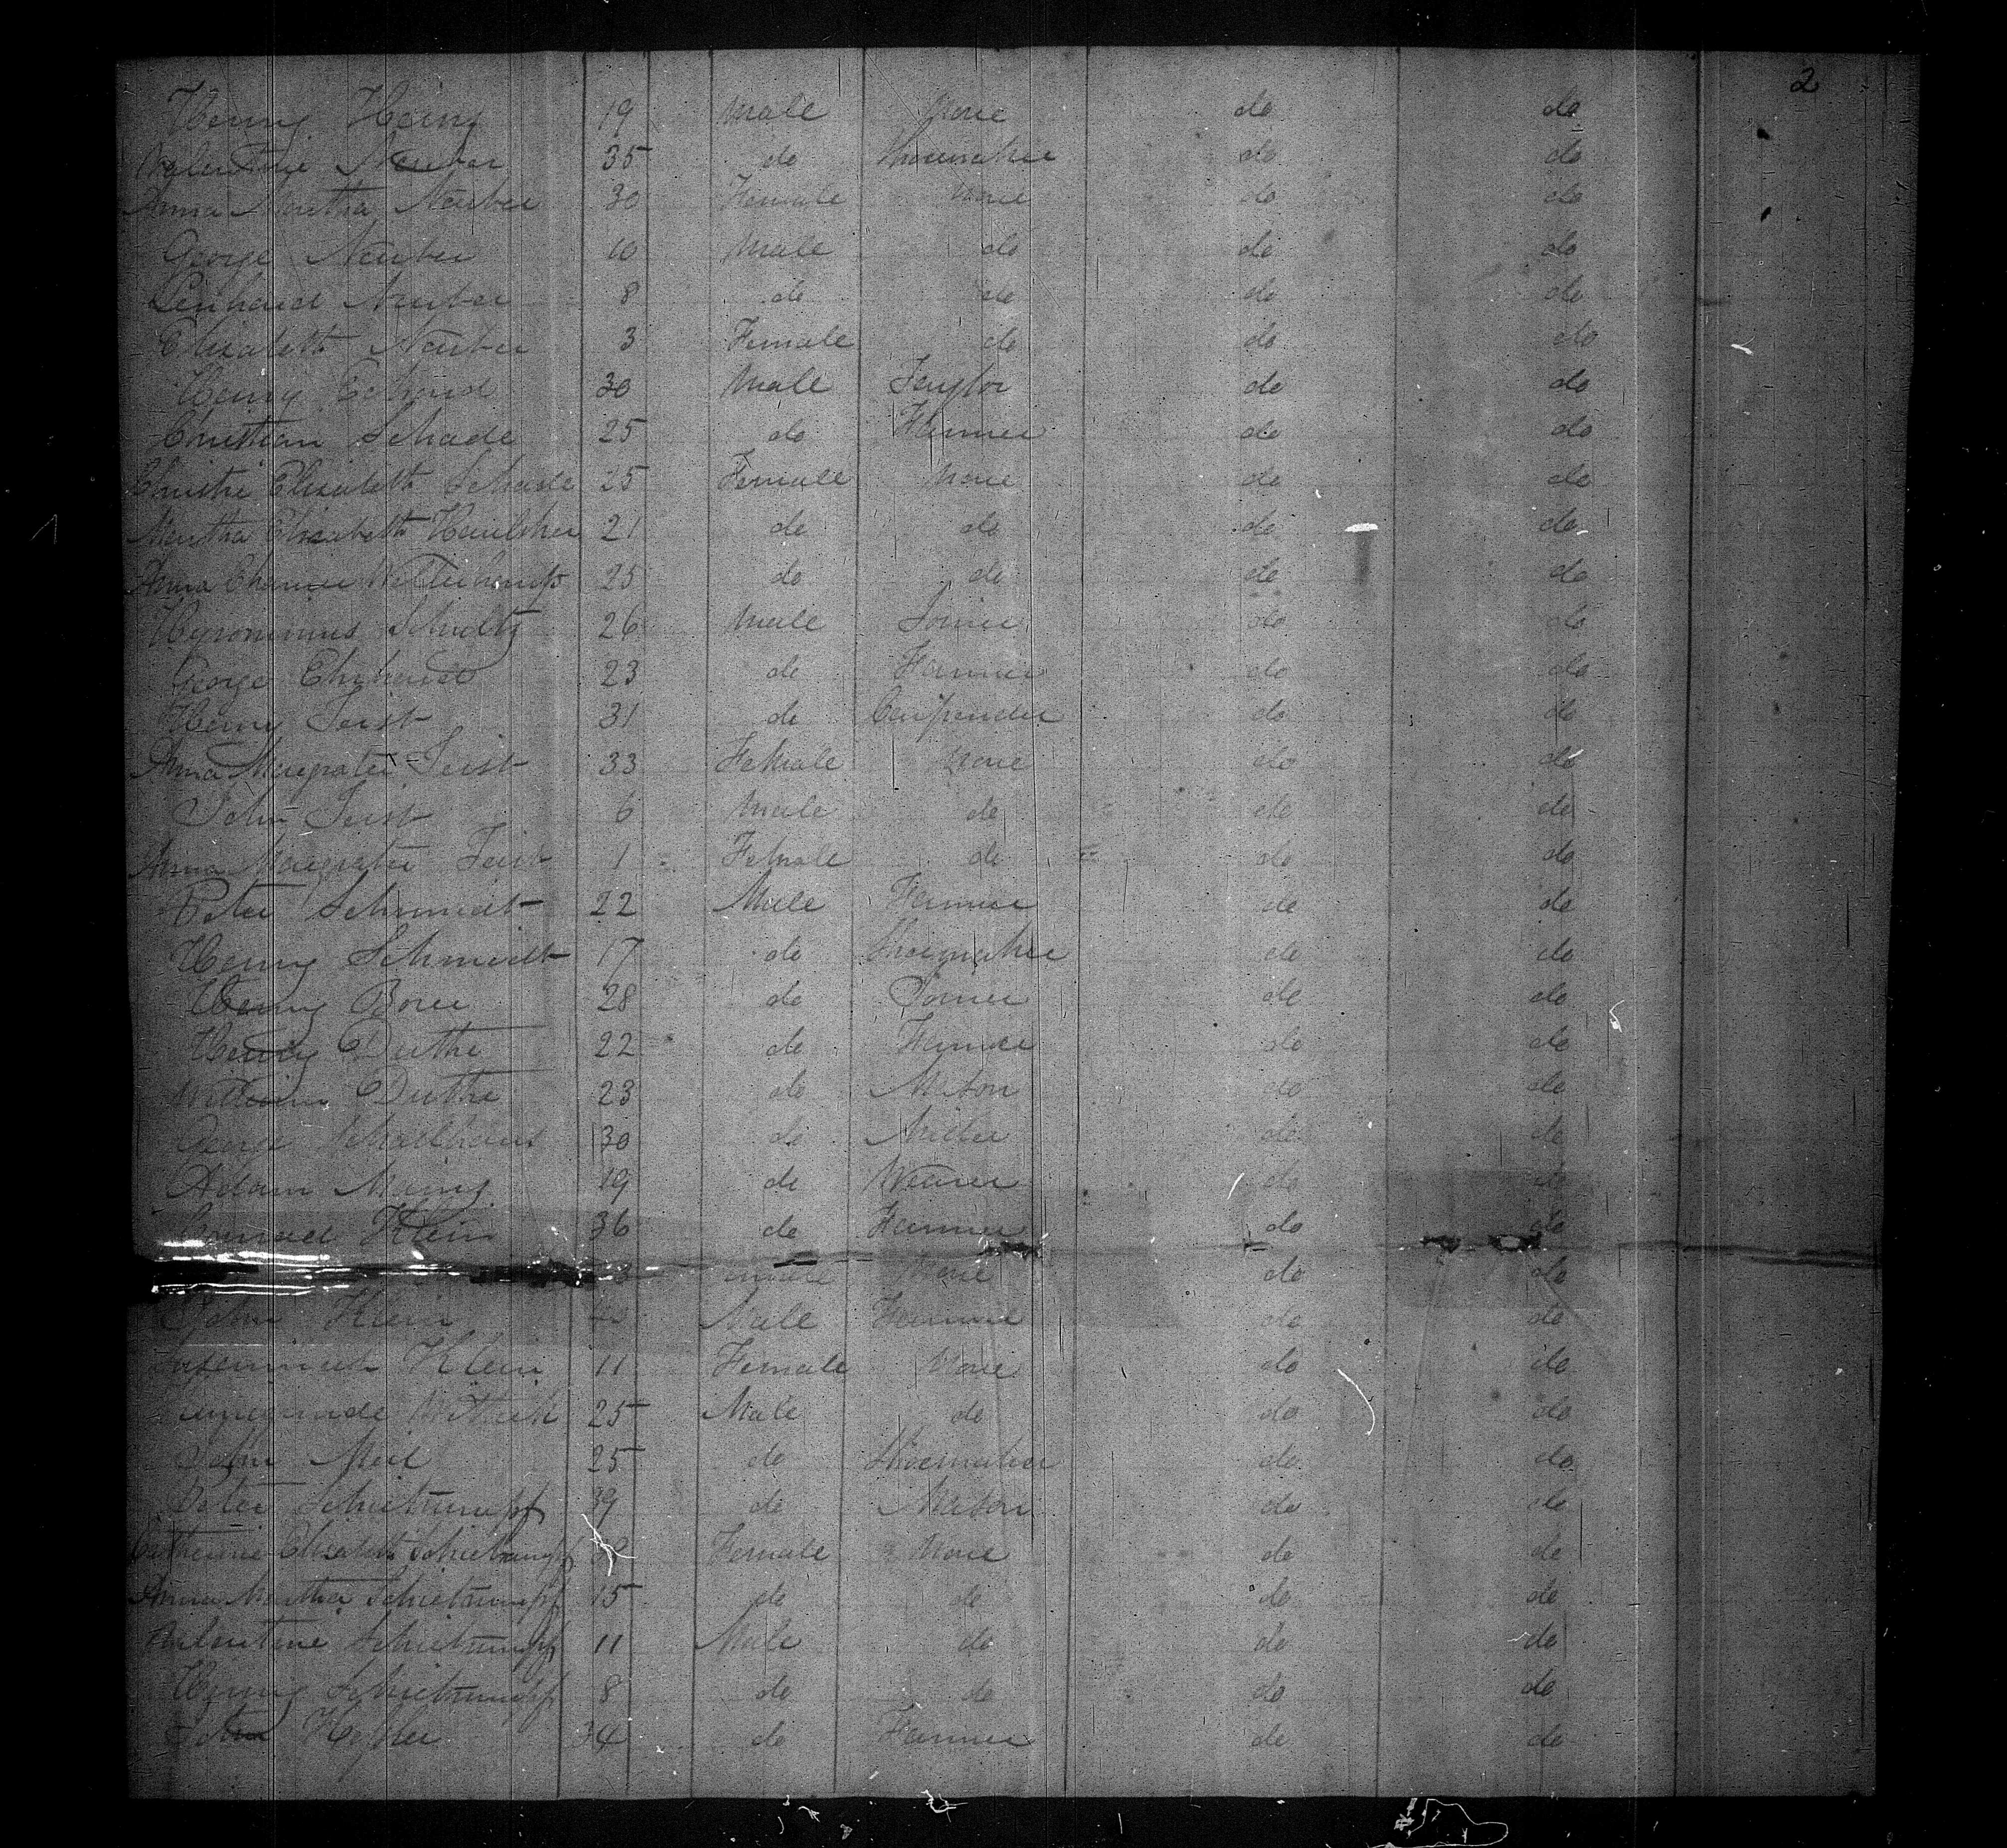 2
Henry Heing 19 Male None do do
Valentine Neuber 35 do Shoemaker do do
Anna Martha Neuber 30 Female None do do
George Neuber 10 Male do do do
Linhard Neuber 8 do do do do
Elisabeth Neuber 3 Female do do do
Henry 30 Male Taylor do do
Christian Schade 25 do Farmer do do
Christie Elisabeth Schade 25 Female None do do
Martha Elisabeth 21 do do do do
Anna 25 do do do do
Hyronimus Scholtz 26 Male Joiner do do
George Ehrhardt 23 do Farmer do do
Henry Jeist 31 do Carpender do do
Anna Margrate Jeist 33 Female None do do
John Jeist 6 Male do do do
Anna Margrate Jeist 1 Female do do do
Peter Schmidt 22 Male Farmer do do
Henry Schmidt 17 do Shoemaker do do
Henry Borer 28 do Joiner do do
Henry Duthe 22 do Farmer do do
William Duthe 23 do Mason do do
George 30 do Miller do do
Adam Meing 19 do Weaver do do
Conrad Klein 36 do Farmer do do
Female None do do
John Klein Male Farmer do do
Klein 11 Female None do do
25 Male do do do
John Meil 25 do Shoemaker do do
Peter Schietrumpf 39 do Mason do do
Catherine Elisabeth Schietrumpf 38 Female None do do
Anna Martha Schietrumpf 15 do do do do
Valentine Schietrumpf 11 Male do do do
Henry Schietrumpf 8 do do do do
John 34 do Farmer do do